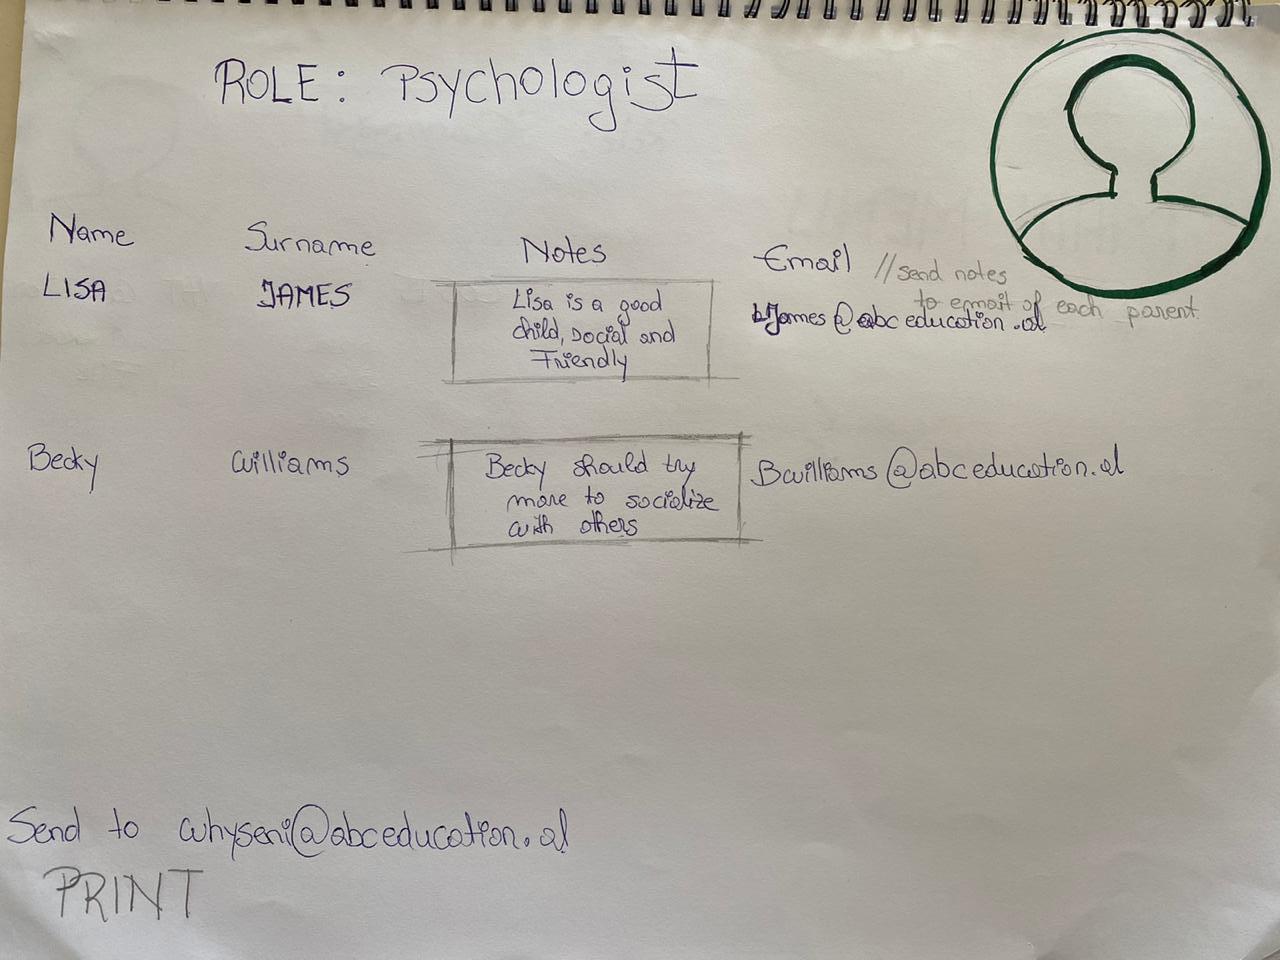 ROLE: Psychologist
Name Surname Notes Email //send notes
to email of each parent
LISA JAMES Lisa is a good
child, social and
Friendly
LJames@abceducation.al
Becky Williams Becky should try
more to socialize
with others
Bwilliams@abceducation.al
Send to whyseni@abceducation.al
PRINT